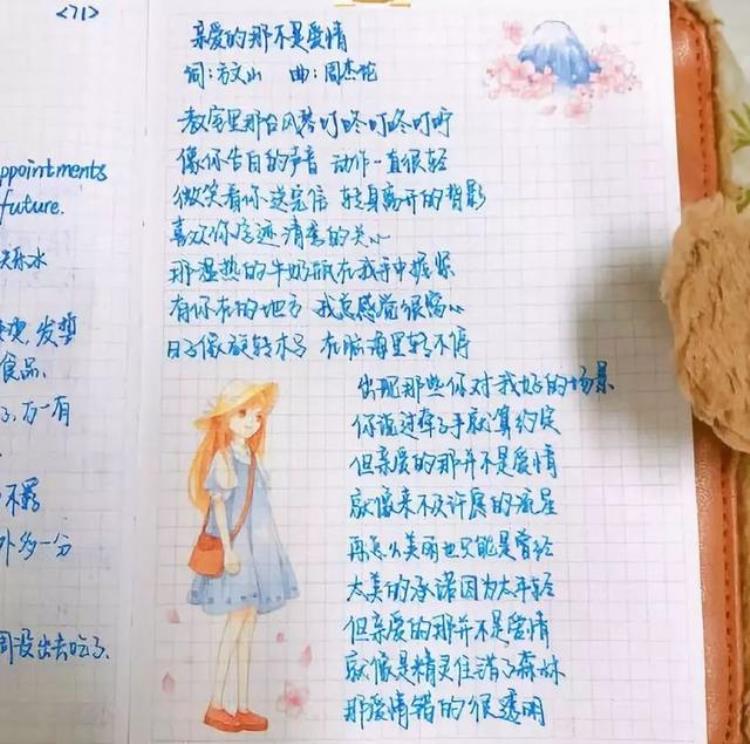 <71>
ppointments
future.
乐水
发塾
食品.
万一有
不罢
外多一分
周没出去吃了.
亲爱的那不是爱情
词:方文山 曲:周杰伦
教室里那台风琴叮咚叮咚叮咛
像你告白的声音 动作一直很轻
微笑看你送完信 转身离开的背影
喜欢你字迹清秀的关心
那温热的牛奶瓶在我手中握紧
有你在的地方 我总感觉很窝心
日子像旋转木马 在脑海里转不停
出现那些你对我好的场景
你说过牵了手就算约定
但亲爱的那并不是爱情
就像来不及许愿的流星
再怎么美丽也只能是曾经
太美的承诺因为太年轻
但亲爱的那并不是爱情
就像是精灵住错了森林
那爱情错的很透明